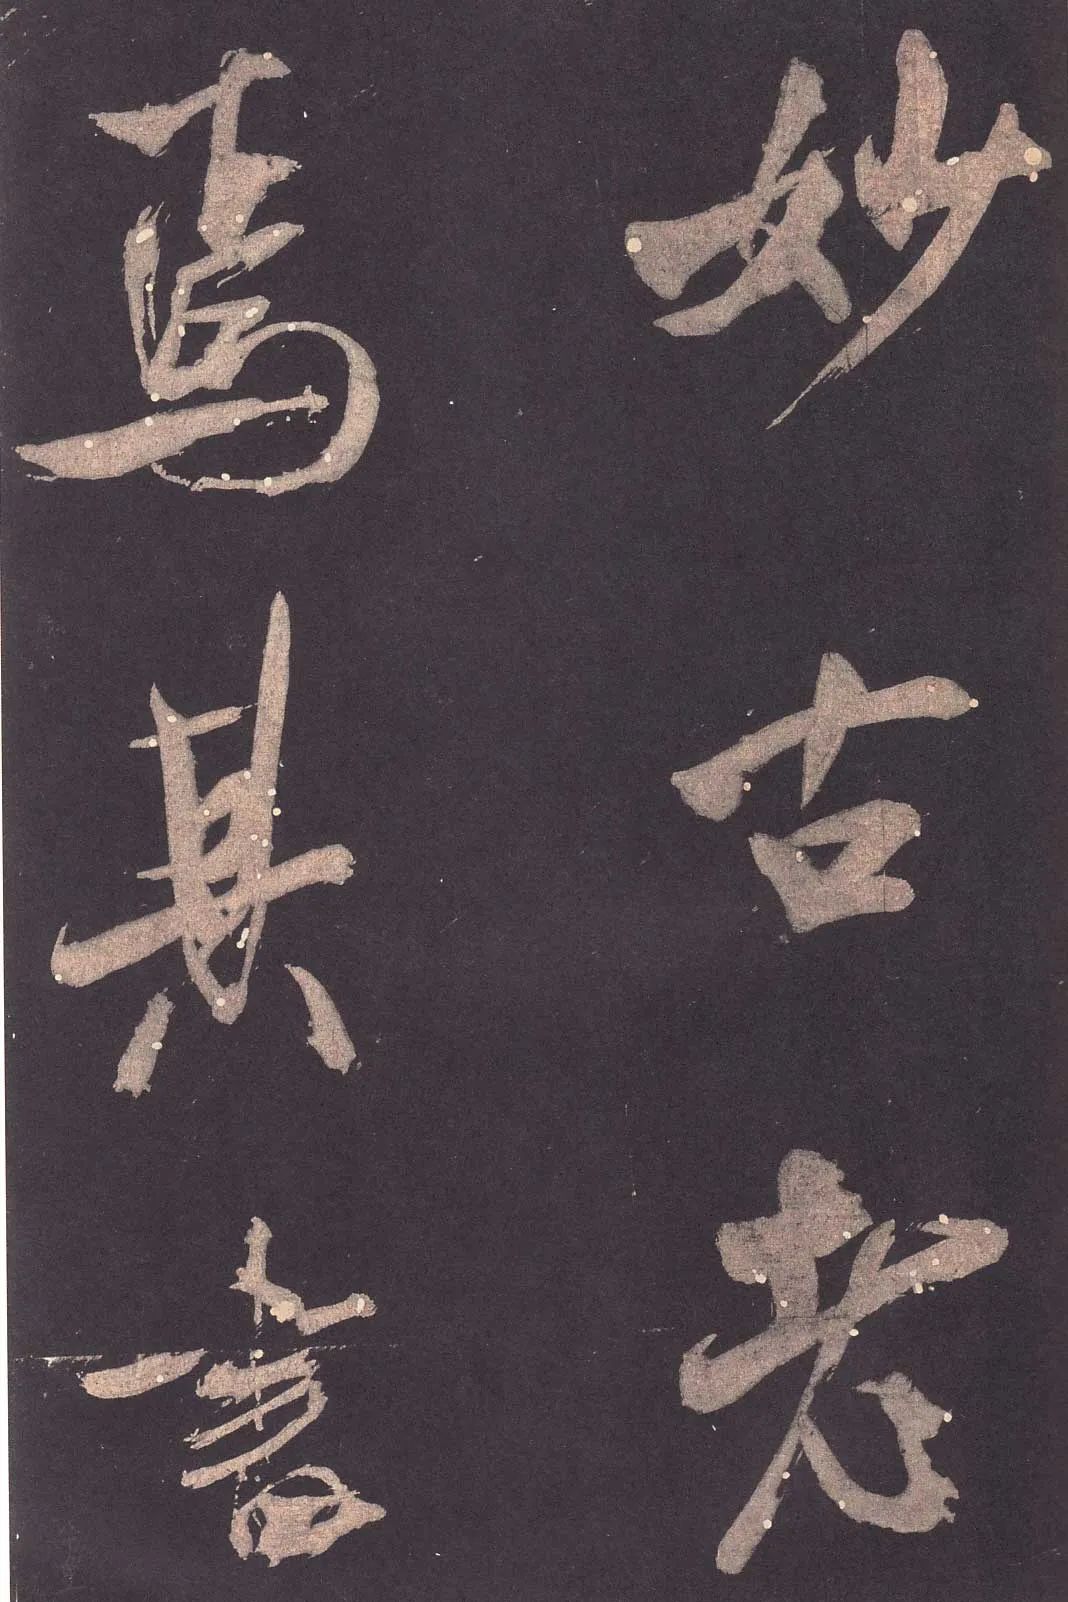 妙古老
焉其書